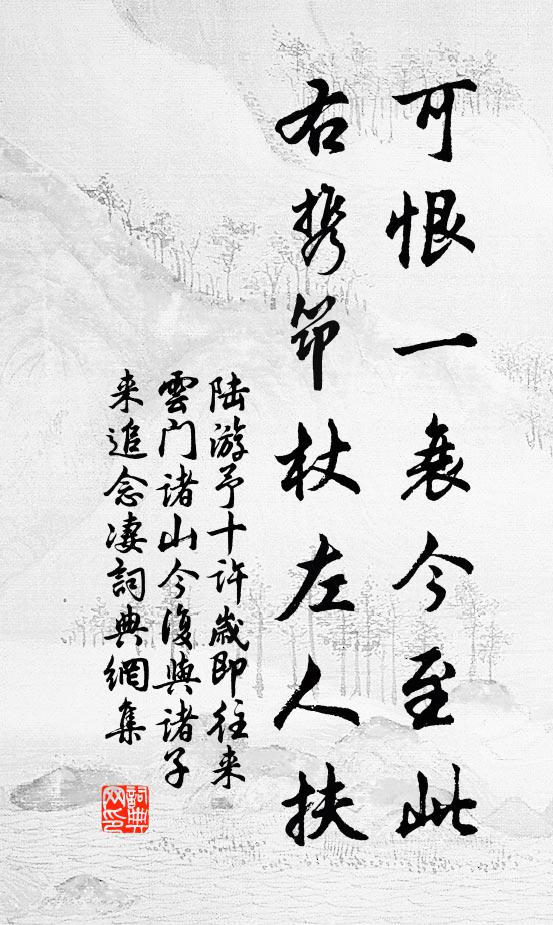 可恨一衰今至此
右携笻杖左人扶
陆游予十许歲即往来
雲门诸山今復與诸子
来追念凄詞典網集
詞典
网印